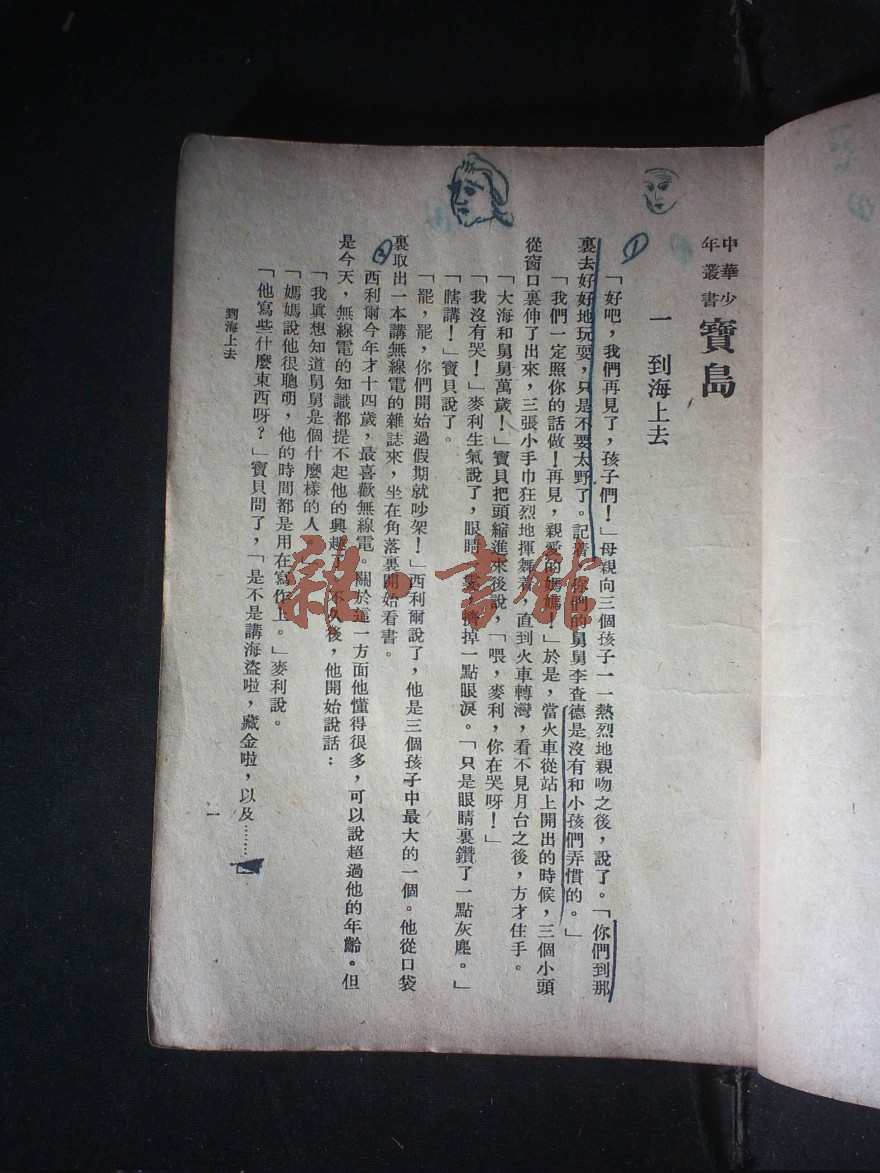 中華少年叢書
寶島
一　到海上去
①
「好吧，我們再見了，孩子們！」母親向三個孩子一一熱烈地親吻之後，說了。「你們到那
裏去好好地玩耍，只是不要太野了。記着，你們的舅舅李查德是沒有和小孩們弄慣的。」
「我們一定照你的話做！再見，親愛的媽媽！」於是，當火車從站上開出的時候，三個小頭
從窗口裏伸了出來，三張小手巾狂烈地揮舞着，直到火車轉灣，看不見月台之後，方才住手。
「大海和舅舅萬歲！」寶貝把頭縮進來後說，「喂，麥利，你在哭呀！」
「我沒有哭！」麥利生氣說了，眼睛擠掉一點眼淚。「只是眼睛裏鑽了一點灰塵。」
「瞎講！」寶貝說了。
「罷，罷，你們開始過假期就吵架！」西利爾說了，他是三個孩子中最大的一個。他從口袋
裏取出一本講無線電的雜誌來，坐在角落裏開始看書。
②
西利爾今年才十四歲，最喜歡無線電。關於這一方面他懂得很多，可以說超過他的年齡。但
是今天，無線電的知識都提不起他的興趣了，不久後，他開始說話：
「我眞想知道舅舅是個什麼樣的人。
「媽媽說他很聰明，他的時間都是用在寫作上。」麥利說。
「他寫些什麼東西呀？」寶貝問了，「是不是講海盜啦，藏金啦，以及……」
到海上去
一
雜·書館